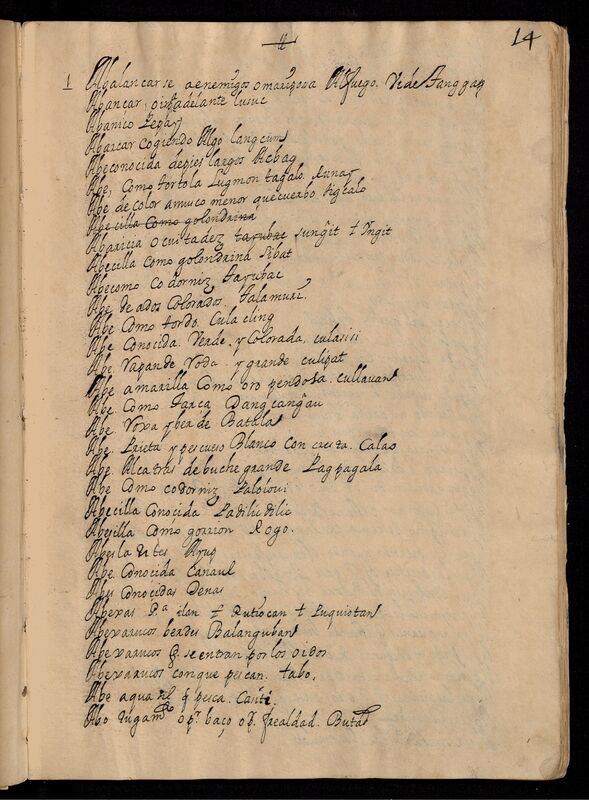 14
1 Abalancarse a enemigos o mariposa Al fuego. Vide Tanggap
Abancar, o ir adelante lusuc
Abanico Pepay
Abarcar cogiendo Algo langcum
Abe conocida de pies largos Acbag
Abe, Como tortola Lugmon tagalo. Runas
Abe de color amuco menor que cuerbo tigcalo
Abe cilla Como golondrina
Abaricia o cuitadez tarubac sungit t Ingit
Abecilla Como golondrina Sibat
Abe como Codorniz Tarubac
Abe de ados Colorados. Talamuri,
Abe Como tordo. Cula cling
Abe Conocida. Verde y Colorada. culasisi
Abe. Vapande Voda. y grande culipat
Abe amarilla Como oro pendola. cullauan
Abe. Como Tarca Dangcangau
Abe. Voxa y ber de Batala
Abe. Prieta y pescueso Blanco con cresta. Calao
Abe. Alcatras de buche grande Pagpagala
Abe Como codorniz Paloioui
Abecilla Conocida Padilic dilic
Abesilla Como gorrion Rogo.
Abe Conocida Canaul
Abes Conocidas Denas
Abexas P.ª ilan t Rutiocan t Puquiotan
Abexarucos berdes Balanguban
Abexarucos q. se entran por los oidos
Abexarucos con que pescan. tabo,
Abe agua nl q pesca. Casiti.